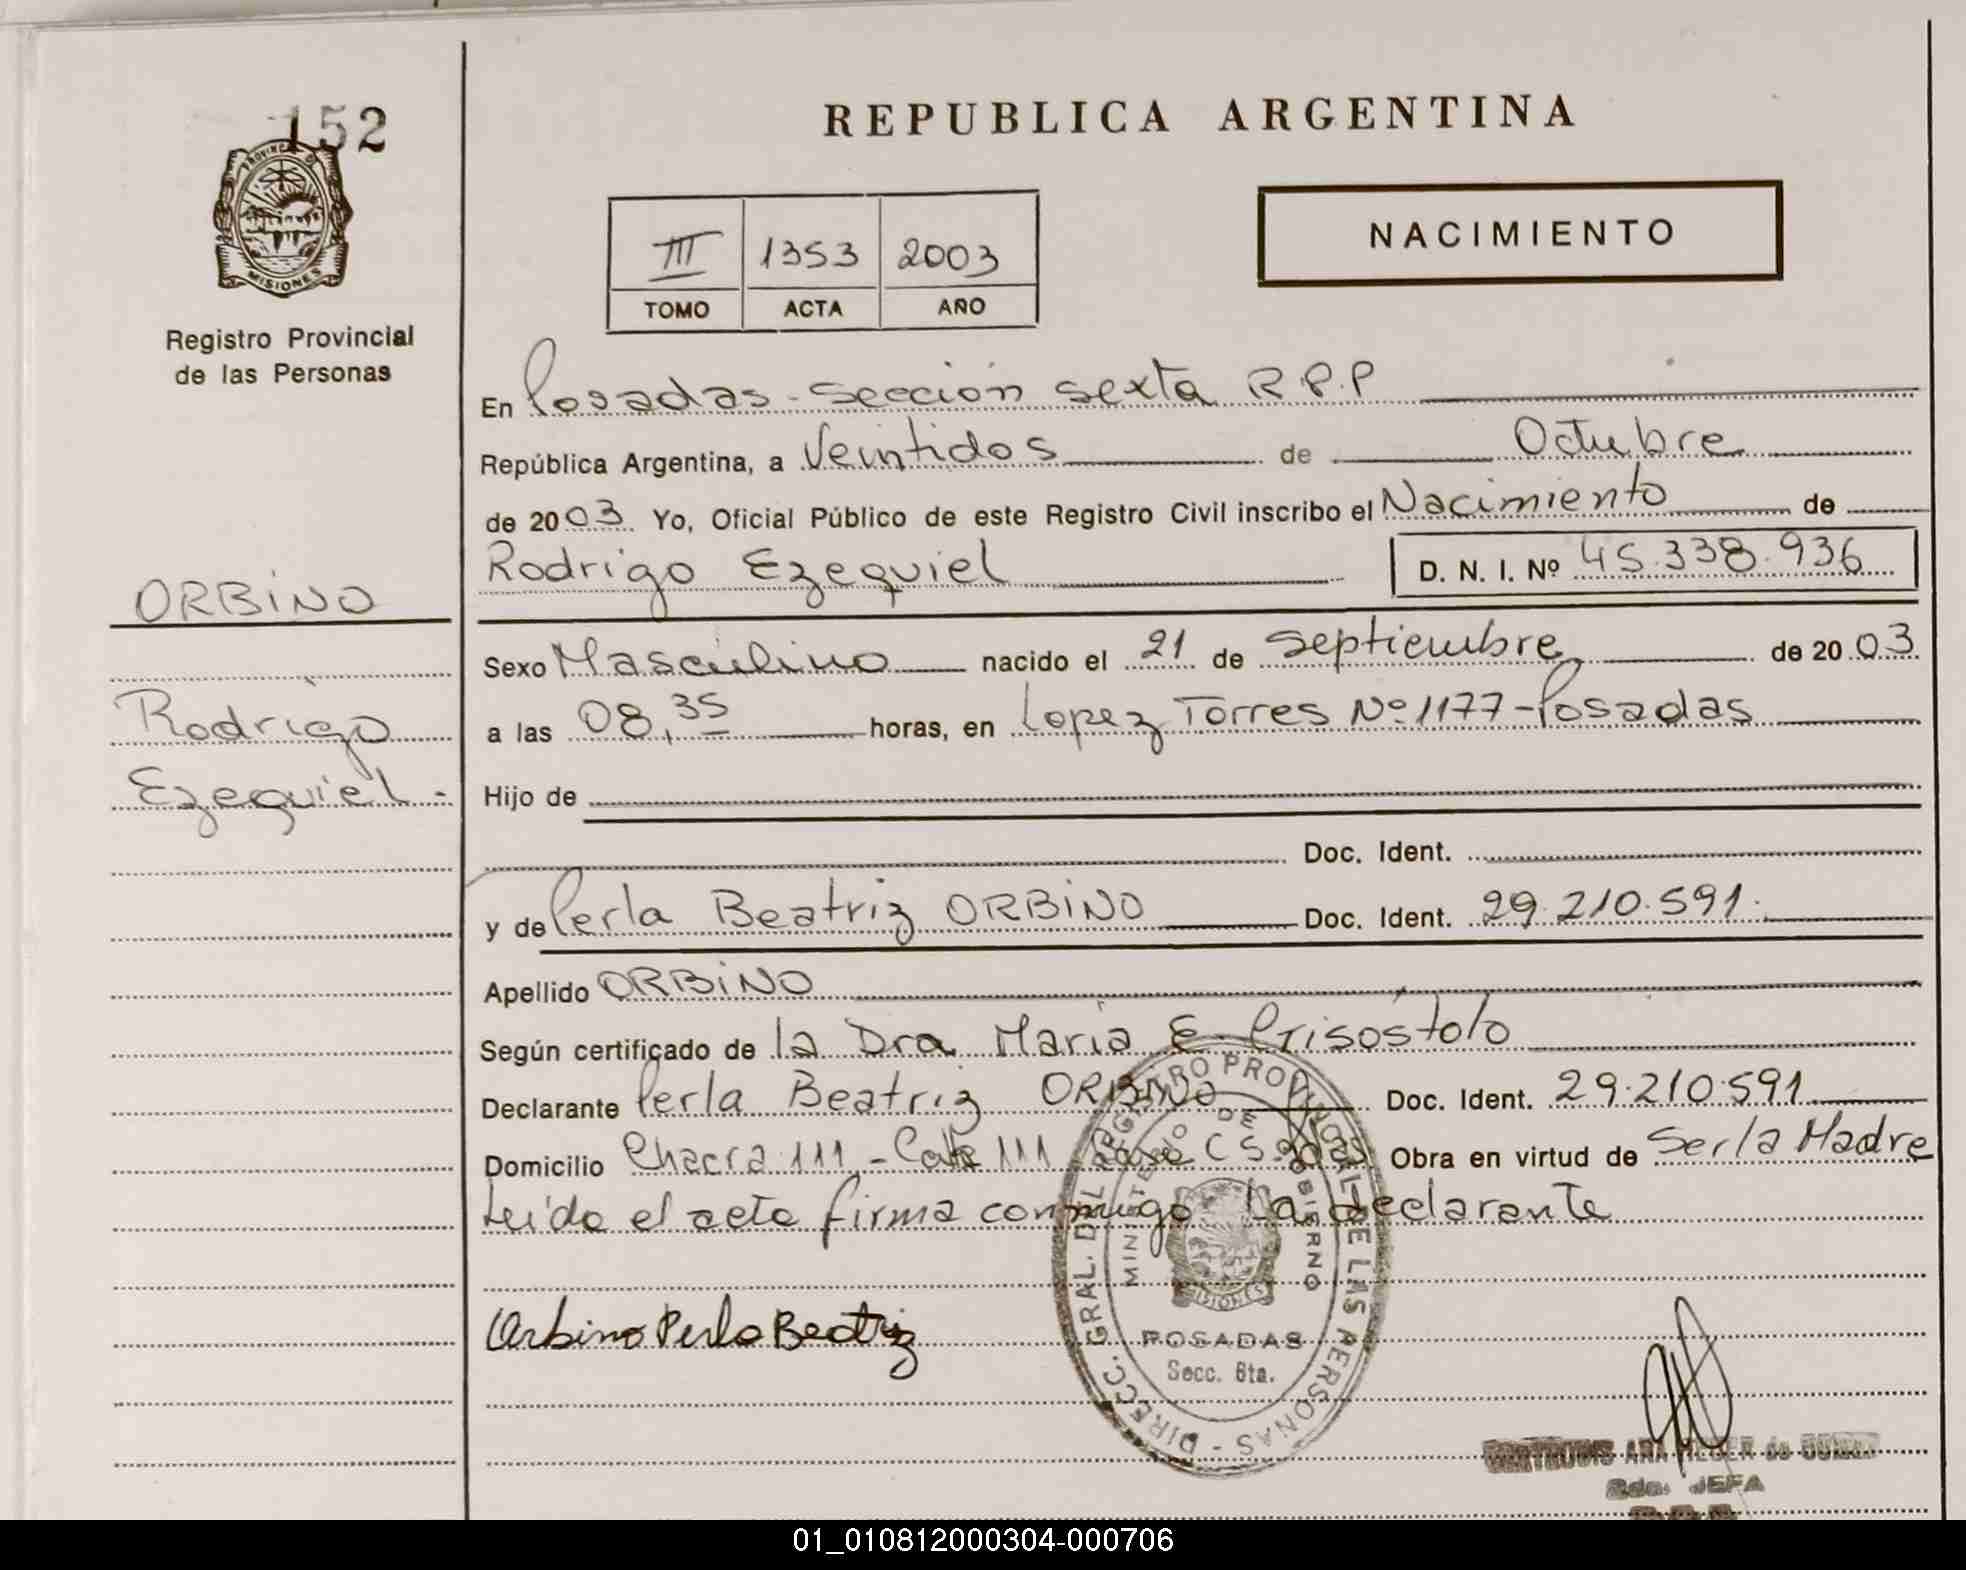 152
PROVINCIA DE
MISIONES
Registro Provincial
de las Personas
REPUBLICA ARGENTINA
III 1353 2003
TOMO ACTA AÑO
NACIMIENTO
En Posadas - Sección Sexta R.P.P
República Argentina, a Veintidos de Octubre
de 2003. Yo, Oficial Público de este Registro Civil inscribo el Nacimiento de
Rodrigo Ezequiel D. N. I. Nº 45.338.936
ORBINO
Rodrigo
Ezequiel -
Sexo Masculino nacido el 21 de Septiembre de 2003
a las 08,35 horas, en Lopez Torres Nº 1177 - Posadas
Hijo de
Doc. Ident.
y de Perla Beatriz ORBINO Doc. Ident. 29.210.591.
Apellido ORBINO
Según certificado de la Dra Maria E. Crisóstolo
Declarante Perla Beatriz ORBINO Doc. Ident. 29.210.591
Domicilio Chacra 111 - 111 Obra en virtud de Ser la Madre
Leido el acta firma conmigo La declarante
Orbino Perla Beatriz
DIRECC. GRAL. DEL REGISTRO PROVINCIAL DE LAS PERSONAS -
MINISTERIO DE GOBIERNO
MISIONES
POSADAS
Secc. 6ta.
GERTRUDIS ANA de
2da. JEFA
01_010812000304-000706